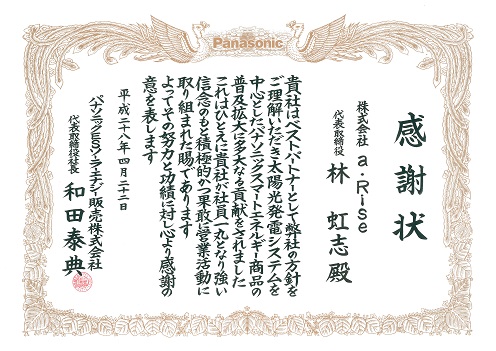 Panasonic
感謝状
株式会社 a・Rise
代表取締役 林 虹志殿
貴社はベストパートナーとして弊社の方針を
ご理解いただき太陽光発電システムを
中心としたパナソニックスマートエネルギー商品の
普及拡大に多大なる貢献をされました
これはひとえに貴社が社員一丸となり強い
信念のもと積極的かつ果敢に営業活動に
取り組まれた賜であります
よってその努力と功績に対し心より感謝の
意を表します
平成二十八年四月二十二日
パナソニックESソーラエナジー販売株式会社
代表取締役社長 和田泰典